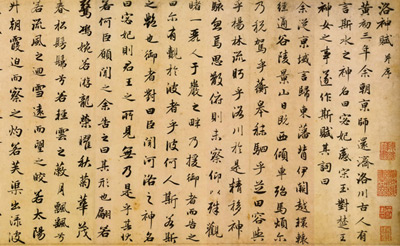 洛神賦 并序
黃初三年余朝京師還濟洛川古人有
言斯水之神名曰宓妃感宋玉對楚王
神女之事遂作斯賦其詞曰
余從京域言歸東藩背伊闕越轘轅
經通谷陵景山日既西傾車殆馬煩尒
乃稅駕乎蘅皋秣駟乎芝田容與
乎楊林流眄乎洛川於是精移神
駭忽焉思散俯則未察仰以殊觀
睹一麗人于巖之畔乃援御者而告之
曰尒有覿於彼者乎彼何人斯若斯
之豔也御者對曰臣聞河洛之神名
曰宓妃則君王之所見無乃是乎其狀
若何臣願聞之余告之曰其形也翩若
驚鴻婉若游龍榮曜秋菊華茂
春松髣髴兮若輕雲之蔽月飄颻兮
若流風之迴雪遠而望之皎若太陽
升朝霞迫而察之灼若芙蕖出淥波